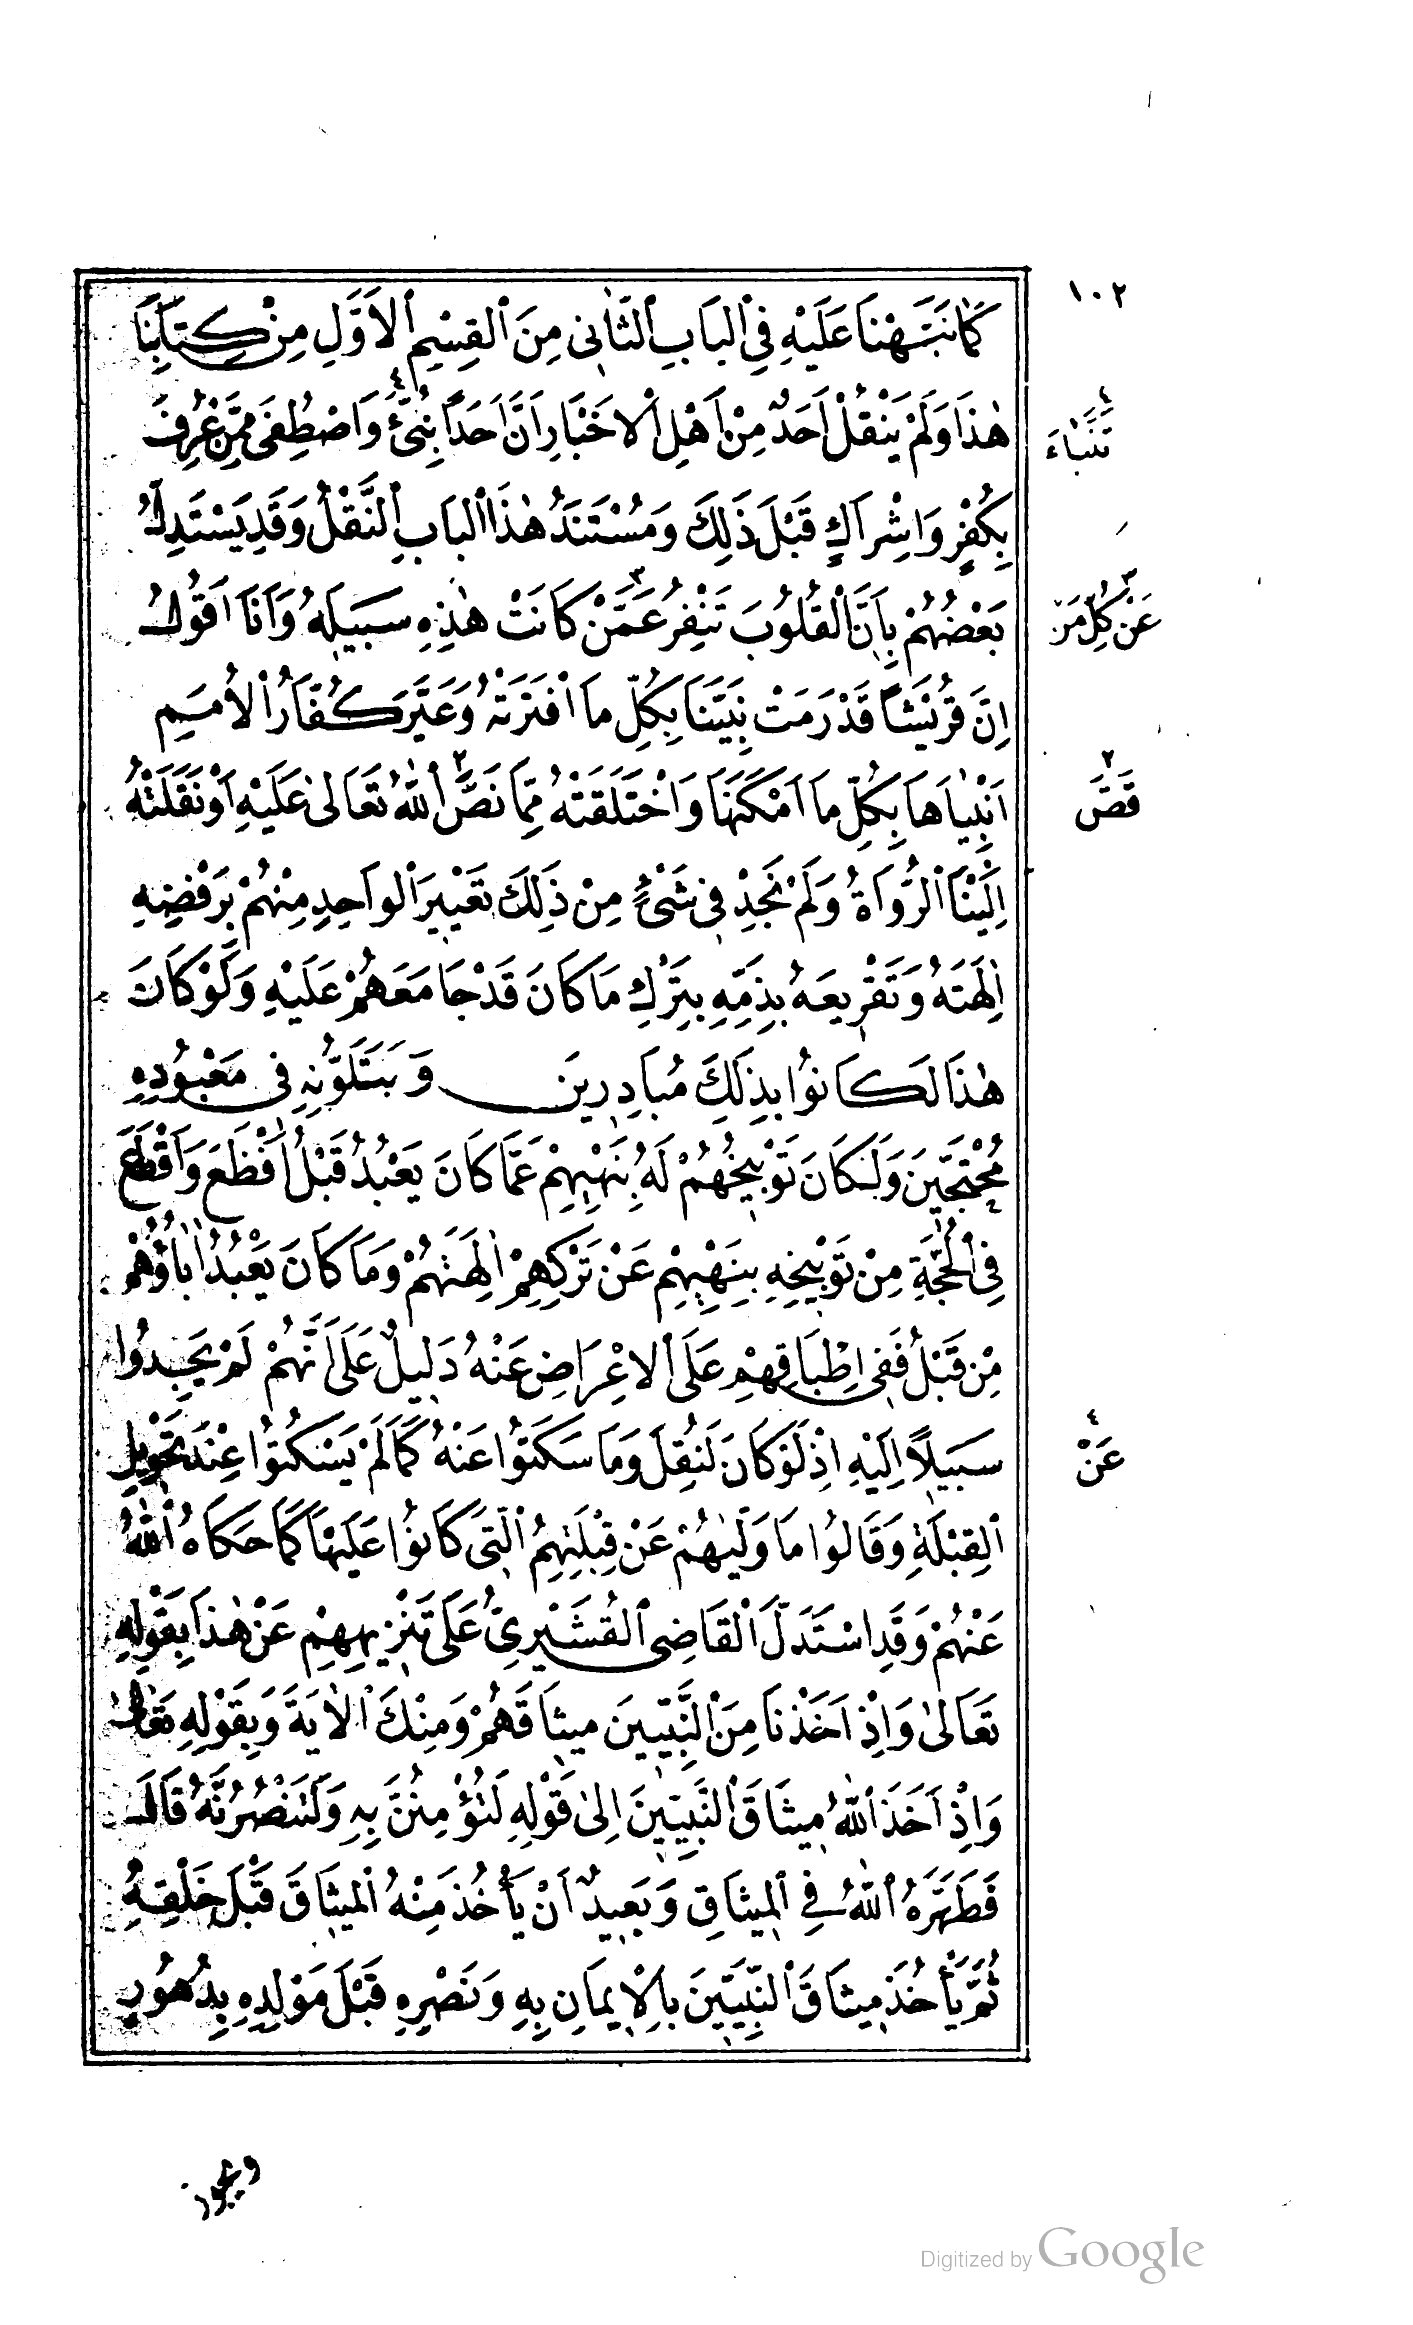 ١٠٢
كَمَا نَبَّهْنَا عَلَيْهِ فِى الْبَابِ الثَّانِى مِنَ الْقِسْمِ الْأَوَّلِ مِنْ كِتَابِنَا
هٰذَا وَلَمْ يَنْقُلْ اَحَدٌ مِنْ اَهْلِ الْاَخْبَارِ اَنَّ اَحَدًا نُبِّئَ ٤ وَاصْطُفِىَ مِمَّنْ عُرِفَ
تَنَبَّاءَ ٤
بِكُفْرٍ وَاِشْرَاكٍ قَبْلَ ذٰلِكَ وَمُسْتَنَدُ هٰذَا الْبَابِ النَّقْلُ وَقَدِ يَسْتَدِلُّ
بَعْضُهُمْ بِاَنَّ الْقُلُوبَ تَنْفِرُ عَمَّنْ ٣ كَانَتْ هٰذِهِ سَبِيلَهُ وَاَنَا اَقُولُ
عَنْ كُلِّ مَنْ ٣
اِنَّ قُرَيْشًا قَدْ رَمَتْ نَبِيَّنَا بِكُلِّ مَا افْتَرَتْهُ وَعَيَّرَ كُفَّارُ الْاُمَمِ
اَنْبِيَاهَا بِكُلِّ مَا اَمْكَنَهَا وَاخْتَلَقَتْهُ مِمَّا نَصَّ ٢ اللّٰهُ تَعَالٰى عَلَيْهِ اَوْ نَقَلَتْهُ
قَصَّ ٢
اِلَيْنَا الرُّوَاةُ وَلَمْ نَجِدْ فِى شَىْءٍ مِنْ ذٰلِكَ تَعْيِيرَ الْوَاحِدِ مِنْهُمْ بِرَفْضِهِ
اٰلِهَتَهُ وَتَقْرِيعَهُ بِذَمِّهِ بِتَرْكِ مَا كَانَ قَدْ جَامَعَهُمْ عَلَيْهِ وَلَوْ كَانَ
هٰذَا لَكَانُوا بِذٰلِكَ مُبَادِرِينَ وَبِتَلَوُّنِهِ فِى مَعْبُودِهِ
مُحْتَجِّينَ وَلَكَانَ تَوْبِيخُهُمْ لَهُ بِنَهْيِهِمْ عَمَّا كَانَ يَعْبُدُ قَبْلُ اَفْظَعَ وَاَقْطَعَ
فِى الْحُجَّةِ مِنْ تَوْبِيخِهِ بِنَهْيِهِمْ عَنْ تَرْكِهِمْ اٰلِهَتَهُمْ وَمَا كَانَ يَعْبُدُ اٰبَاؤُهُمْ
مِنْ قَبْلُ فَفِى اِطْبَاقِهِمْ عَلَى الْاِعْرَاضِ عَنْهُ دَلِيلٌ عَلَى اَنَّهُمْ لَمْ يَجِدُوا
سَبِيلًا اِلَيْهِ اِذْ لَوْ كَانَ لَنُقِلَ وَمَا سَكَتُوا عَنْهُ كَمَا لَمْ يَسْكُتُوا عِنْدَ تَحْوِيلِ
عَنْ ٤
الْقِبْلَةِ وَقَالُوا مَا وَلّٰيهُمْ عَنْ قِبْلَتِهِمُ الَّتِى كَانُوا عَلَيْهَا كَمَا حَكَاهُ اللّٰهُ
عَنْهُمْ وَقَدِ اسْتَدَلَّ الْقَاضِى الْقُشَيْرِىُّ عَلَى تَنْزِيهِهِمْ عَنْ هٰذَا بِقَوْلِهِ
تَعَالٰى وَاِذْ اَخَذْنَا مِنَ النَّبِيِّينَ مِيثَاقَهُمْ وَمِنْكَ الْاٰيَةَ وَبِقَوْلِهِ تَعَالٰى
وَاِذْ اَخَذَ اللّٰهُ مِيثَاقَ النَّبِيِّينَ اِلٰى قَوْلِهِ لَتُؤْمِنُنَّ بِهِ وَلَتَنْصُرُنَّهُ قَالَ
فَطَهَّرَهُ اللّٰهُ فِى الْمِيثَاقِ وَبَعِيدٌ اَنْ يَأْخُذَ مِنْهُ الْمِيثَاقَ قَبْلَ خَلْقِهِ
ثُمَّ يَأْخُذَ مِيثَاقَ النَّبِيِّينَ بِالْاِيمَانِ بِهِ وَنَصْرِهِ قَبْلَ مَوْلِدِهِ بِدُهُورٍ
ويجوز
Digitized by Google